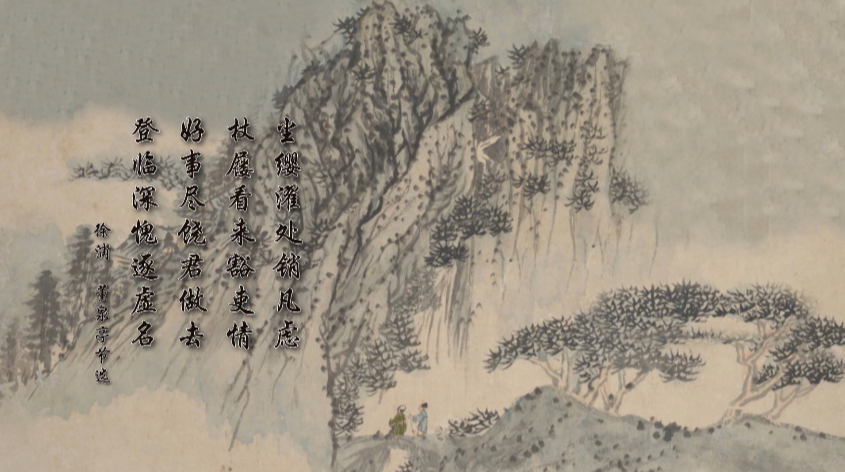 尘缨濯处销凡虑
杖屦看来豁吏情
好事尽饶君做去
登临深愧逐虚名
徐浦 蒙泉亭节选